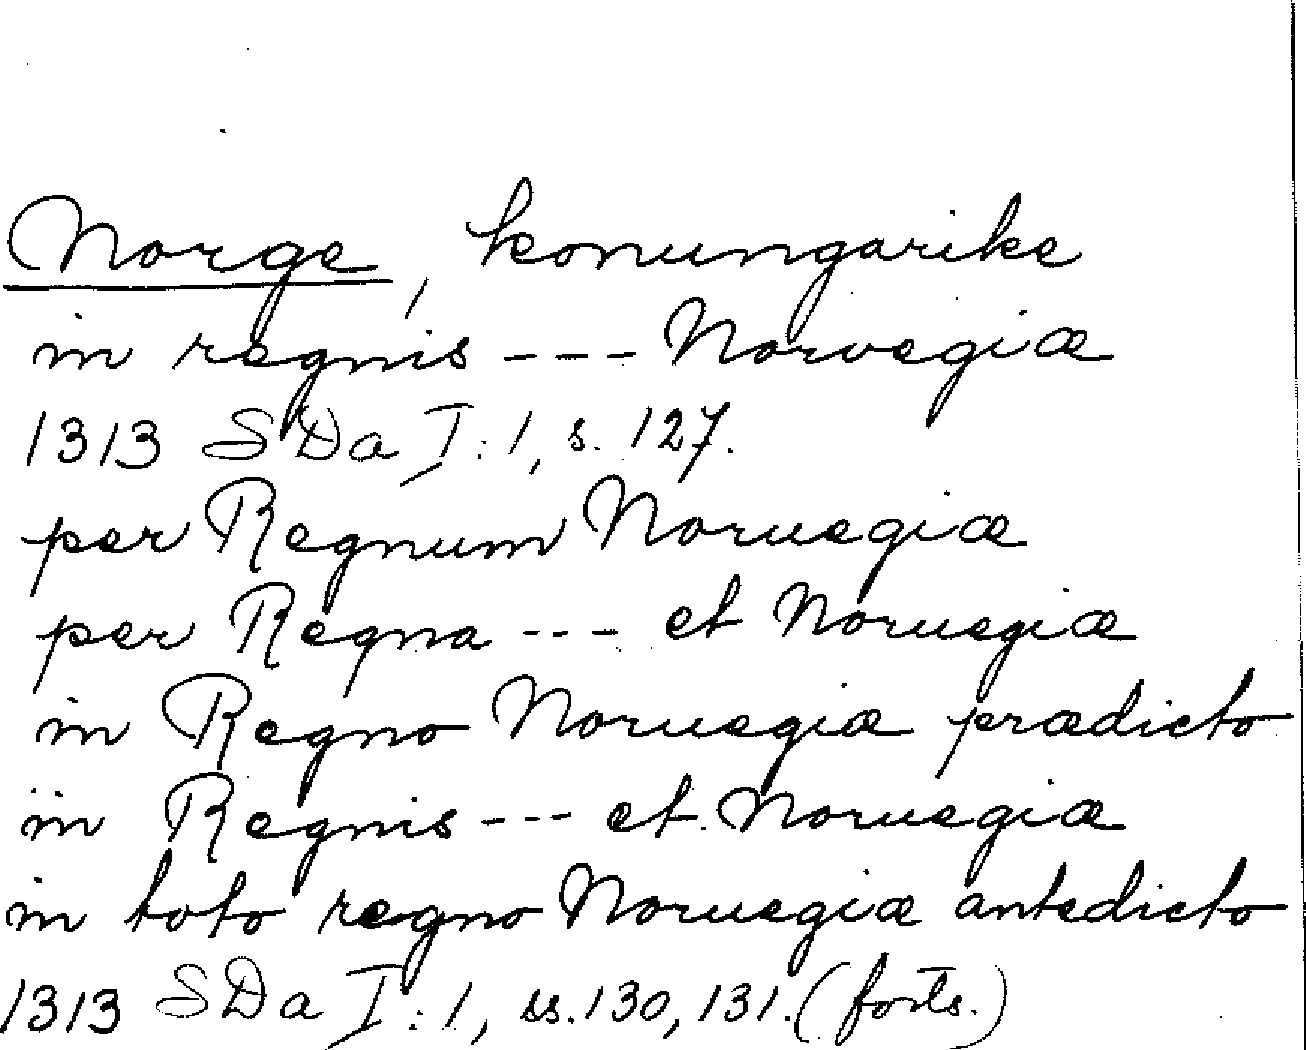 Norge, konungarike
in regnis --- Norvegiæ
1313 SDa I:1, s. 127.
per Regnum Noruegiæ
per Regna --- et Noruegiæ
in Regno Noruegiæ prædicto
in Regnis --- et Noruegiæ
in toto regno Noruegiæ antedicto
1313 SDa I:1, ss. 130, 131. (forts.)